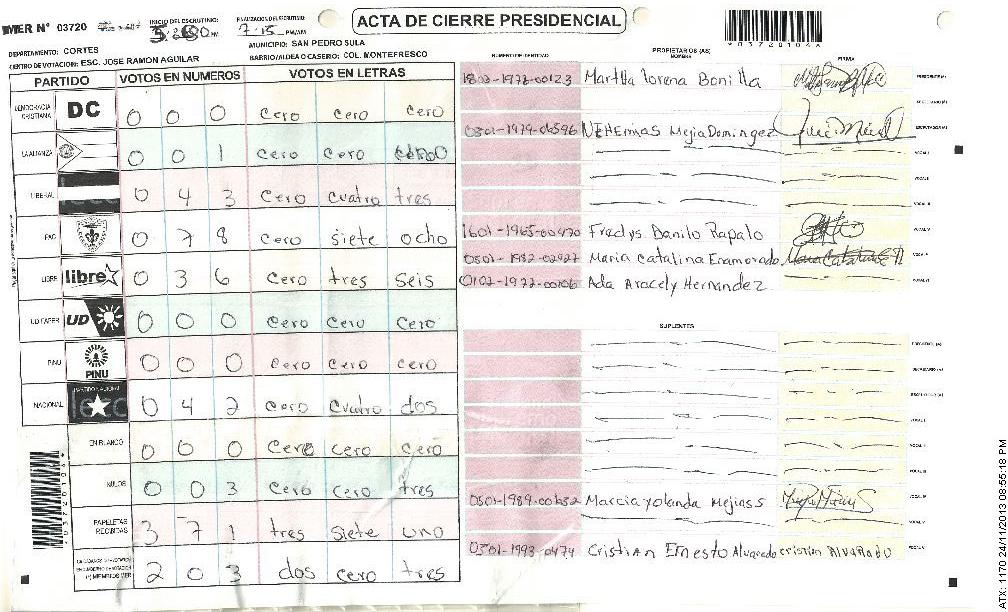 MER N° 03720
INICIO DEL ESCRUTINIO:
FINALIZACION DEL ESCRUTINIO:
7:15 PM/AM
ACTA DE CIERRE PRESIDENCIAL
*03720104*
DEPARTAMENTO: CORTES
MUNICIPIO: SAN PEDRO SULA
CENTRO DE VOTACION: ESC. JOSE RAMON AGUILAR
BARRIO/ALDEA O CASERIO: COL. MONTEFRESCO
PARTIDO VOTOS EN NUMEROS VOTOS EN LETRAS
DEMOCRACIA CRISTIANA DC 0 0 0 cero cero cero
LA ALIANZA 0 0 1 cero cero
LIBERAL 0 4 3 cero cuatro tres
PAC 0 7 8 cero siete ocho
LIBRE libre 0 3 6 cero tres seis
UD FAPER UD 0 0 0 cero cero cero
PINU PINU 0 0 0 cero cero cero
NACIONAL PARTIDO NACIONAL 0 4 2 cero cuatro dos
EN BLANCO 0 0 0 cero cero cero
NULOS 0 0 3 cero cero tres
PAPELETAS RECIBIDAS 3 7 1 tres siete uno
(*) MIEMBROS MER 2 0 3 dos cero tres
NUMERO DE IDENTIDAD PROPIETARIOS (AS) NOMBRE FIRMA
1803-1978-00123 Martha Lorena Bonilla PRESIDENTE (A)
SECRETARIO (A)
0501-1979-06596 NEHEMIAS Mejia Dominguez ESCRUTADOR (A)
VOCAL I
VOCAL II
VOCAL III
1601-1965-00470 Fredys Danilo Rapalo VOCAL IV
0501-1982-02927 Maria Catalina Enamorado VOCAL V
0102-1977-00106 Ada Aracely Hernandez VOCAL VI
SUPLENTES
PRESIDENTE (A)
SECRETARIO (A)
ESCRUTADOR (A)
VOCAL I
VOCAL II
VOCAL III
0501-1989-00632 Marcia Yolanda Mejia S VOCAL IV
VOCAL V
0501-1993-0474 Cristian Ernesto Alvarado cristian Alvarado VOCAL VI
*03720104*
ATX: 1170 24/11/2013 08:55:18 PM